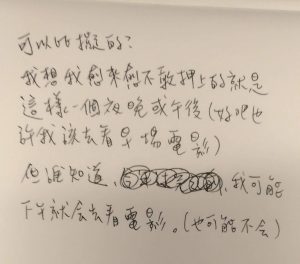 可以的擬定的?
我想我愈來愈不敢押上的就是
這樣一個夜晚或午後(好吧也
許我該去看早場電影)
但誰知道、我可能
下午就会去看電影。(也可能不会)